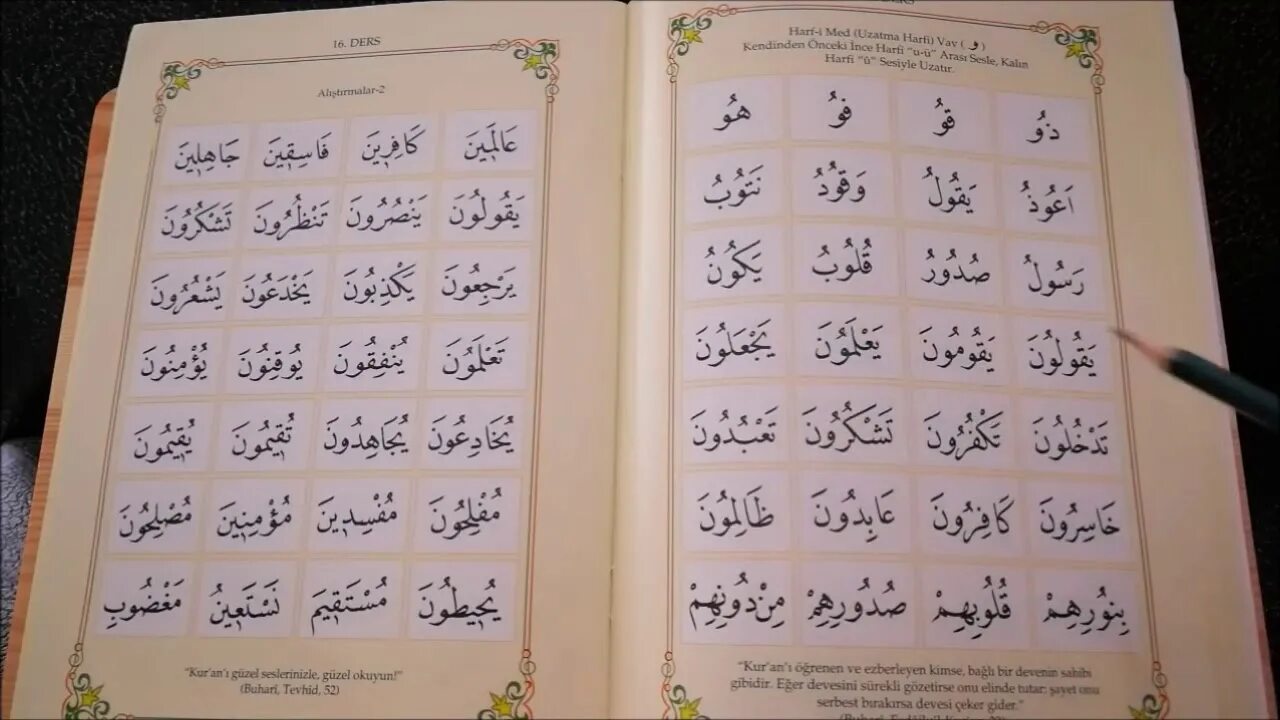 DERS
Harf-i Med (Uzatma Harfi) Vav ( و )
Kendinden Önceki İnce Harfi “u-ü” Arası Sesle, Kalın
Harfi “û” Sesiyle Uzatır.
ذُو قُو فُو هُو
اَعُوذُ يَقُولُ وَقُودُ نَتُوبُ
رَسُولُ صُدُورُ قُلُوبُ يَكُونُ
يَقُولُونَ يَقُومُونَ يَعْلَمُونَ يَجْعَلُونَ
تَدْخُلُونَ تَكْفُرُونَ تَشْكُرُونَ تَعْبُدُونَ
خَاسِرُونَ كَافِرُونَ عَابِدُونَ ظَالِمُونَ
بِنُورِهِمْ قُلُوبِهِمْ صُدُورِهِمْ مِنْ دُونِهِمْ
“Kur’an’ı öğrenen ve ezberleyen kimse, bağlı bir devenin sahibi
gibidir. Eğer devesini sürekli gözetirse onu elinde tutar; şayet onu
serbest bırakırsa devesi çeker gider.”
16. DERS
Alıştırmalar-2
عَالَمِينَ كَافِرِينَ فَاسِقِينَ جَاهِلِينَ
يَقُولُونَ يَنْصُرُونَ تَنْظُرُونَ تَشْكُرُونَ
يَرْجِعُونَ يَكْذِبُونَ يَخْدَعُونَ يَشْعُرُونَ
تَعْلَمُونَ يُنْفِقُونَ يُوقِنُونَ يُؤْمِنُونَ
يُخَادِعُونَ يُجَاهِدُونَ تُقِيمُونَ يُقِيمُونَ
مُفْلِحُونَ مُفْسِدِينَ مُؤْمِنِينَ مُصْلِحُونَ
يُحِيطُونَ مُسْتَقِيمَ نَسْتَعِينُ مَغْضُوبِ
“Kur’an’ı güzel seslerinizle, güzel okuyun!”
(Buharî, Tevhid, 52)